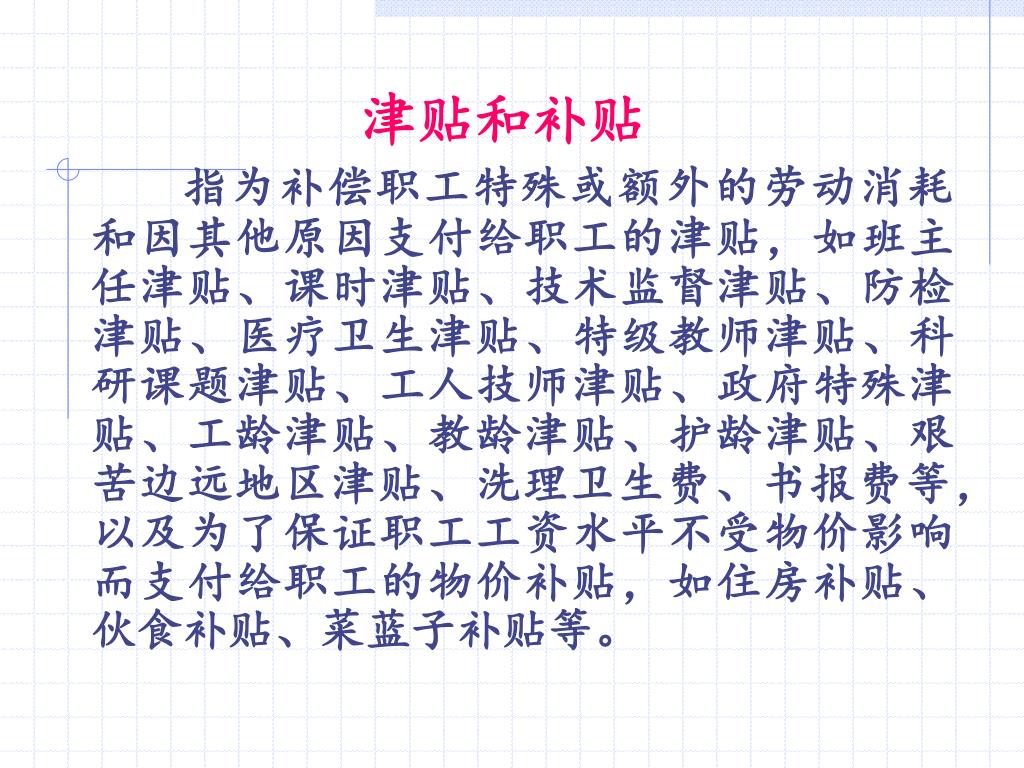 津贴和补贴
指为补偿职工特殊或额外的劳动消耗
和因其他原因支付给职工的津贴，如班主
任津贴、课时津贴、技术监督津贴、防检
津贴、医疗卫生津贴、特级教师津贴、科
研课题津贴、工人技师津贴、政府特殊津
贴、工龄津贴、教龄津贴、护龄津贴、艰
苦边远地区津贴、洗理卫生费、书报费等，
以及为了保证职工工资水平不受物价影响
而支付给职工的物价补贴，如住房补贴、
伙食补贴、菜蓝子补贴等。